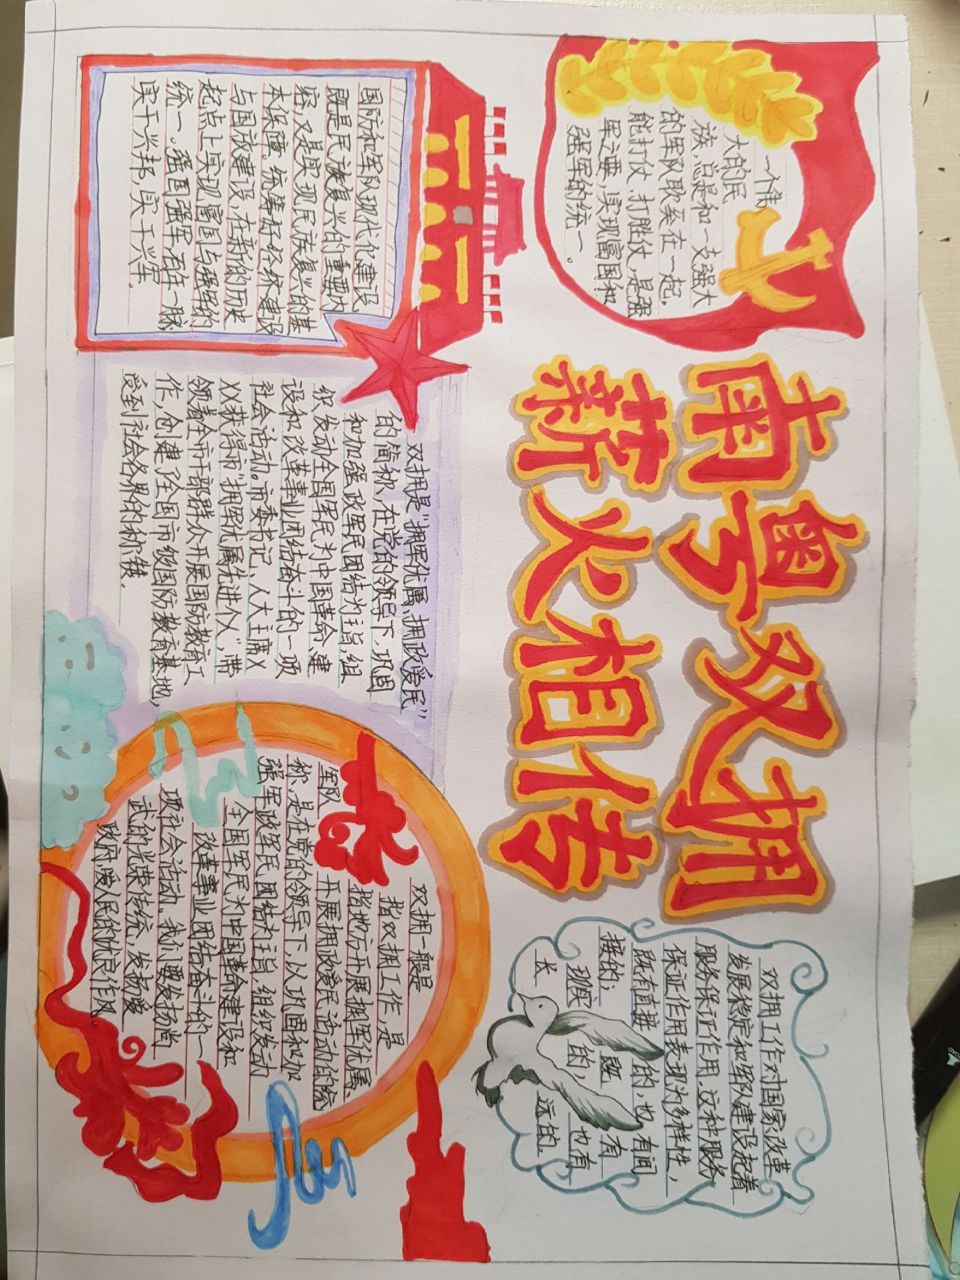 南粤双拥
薪火相传
一个伟
大的民
族,总是和一支强大
的军队联系在一起,
能打仗、打胜仗,是强
军之要,实现富国和
强军的统一。
国防和军队现代化建设
既是民族复兴的重要内
容,又是实现民族复兴的基
本保障。统筹好经济建设
与国放建设,在新的历史
起点上实现富国与强军的
统一。强国强军,存在一脉
实干兴邦,实干兴军.
双拥是“拥军优属、拥政爱民”
的简称,在党的领导下,巩固
和加强政军民团结为主旨,组
织发动全国军民为中国革命、建
设和改革事业团结奋斗的一项
社会活动。市委书记、人大主席X
XX获得市“拥军优属先进个人”,带
领着全市干部群众开展国防教育工
作,创建了全国市级国防教育基地,
受到社会各界的称赞.
双拥工作对国家改革
发展稳定和军队建设起着
服务保证作用.这种服务
保证作用表现为多样性,
既有直接的,也有间
接的;既有
现实的,也有
长远的。
双拥一般是
指双拥工作,是
指地方开展拥军优属、
军队开展拥政爱民活动的统
称,是在党的领导下,以巩固和加
强军政军民团结为主旨,组织发动
全国军民为中国革命、建设和
改革事业团结奋斗的一
项社会活动。我们要发扬尚
武的光荣传统,发扬爱
政府、爱人民的优良作风